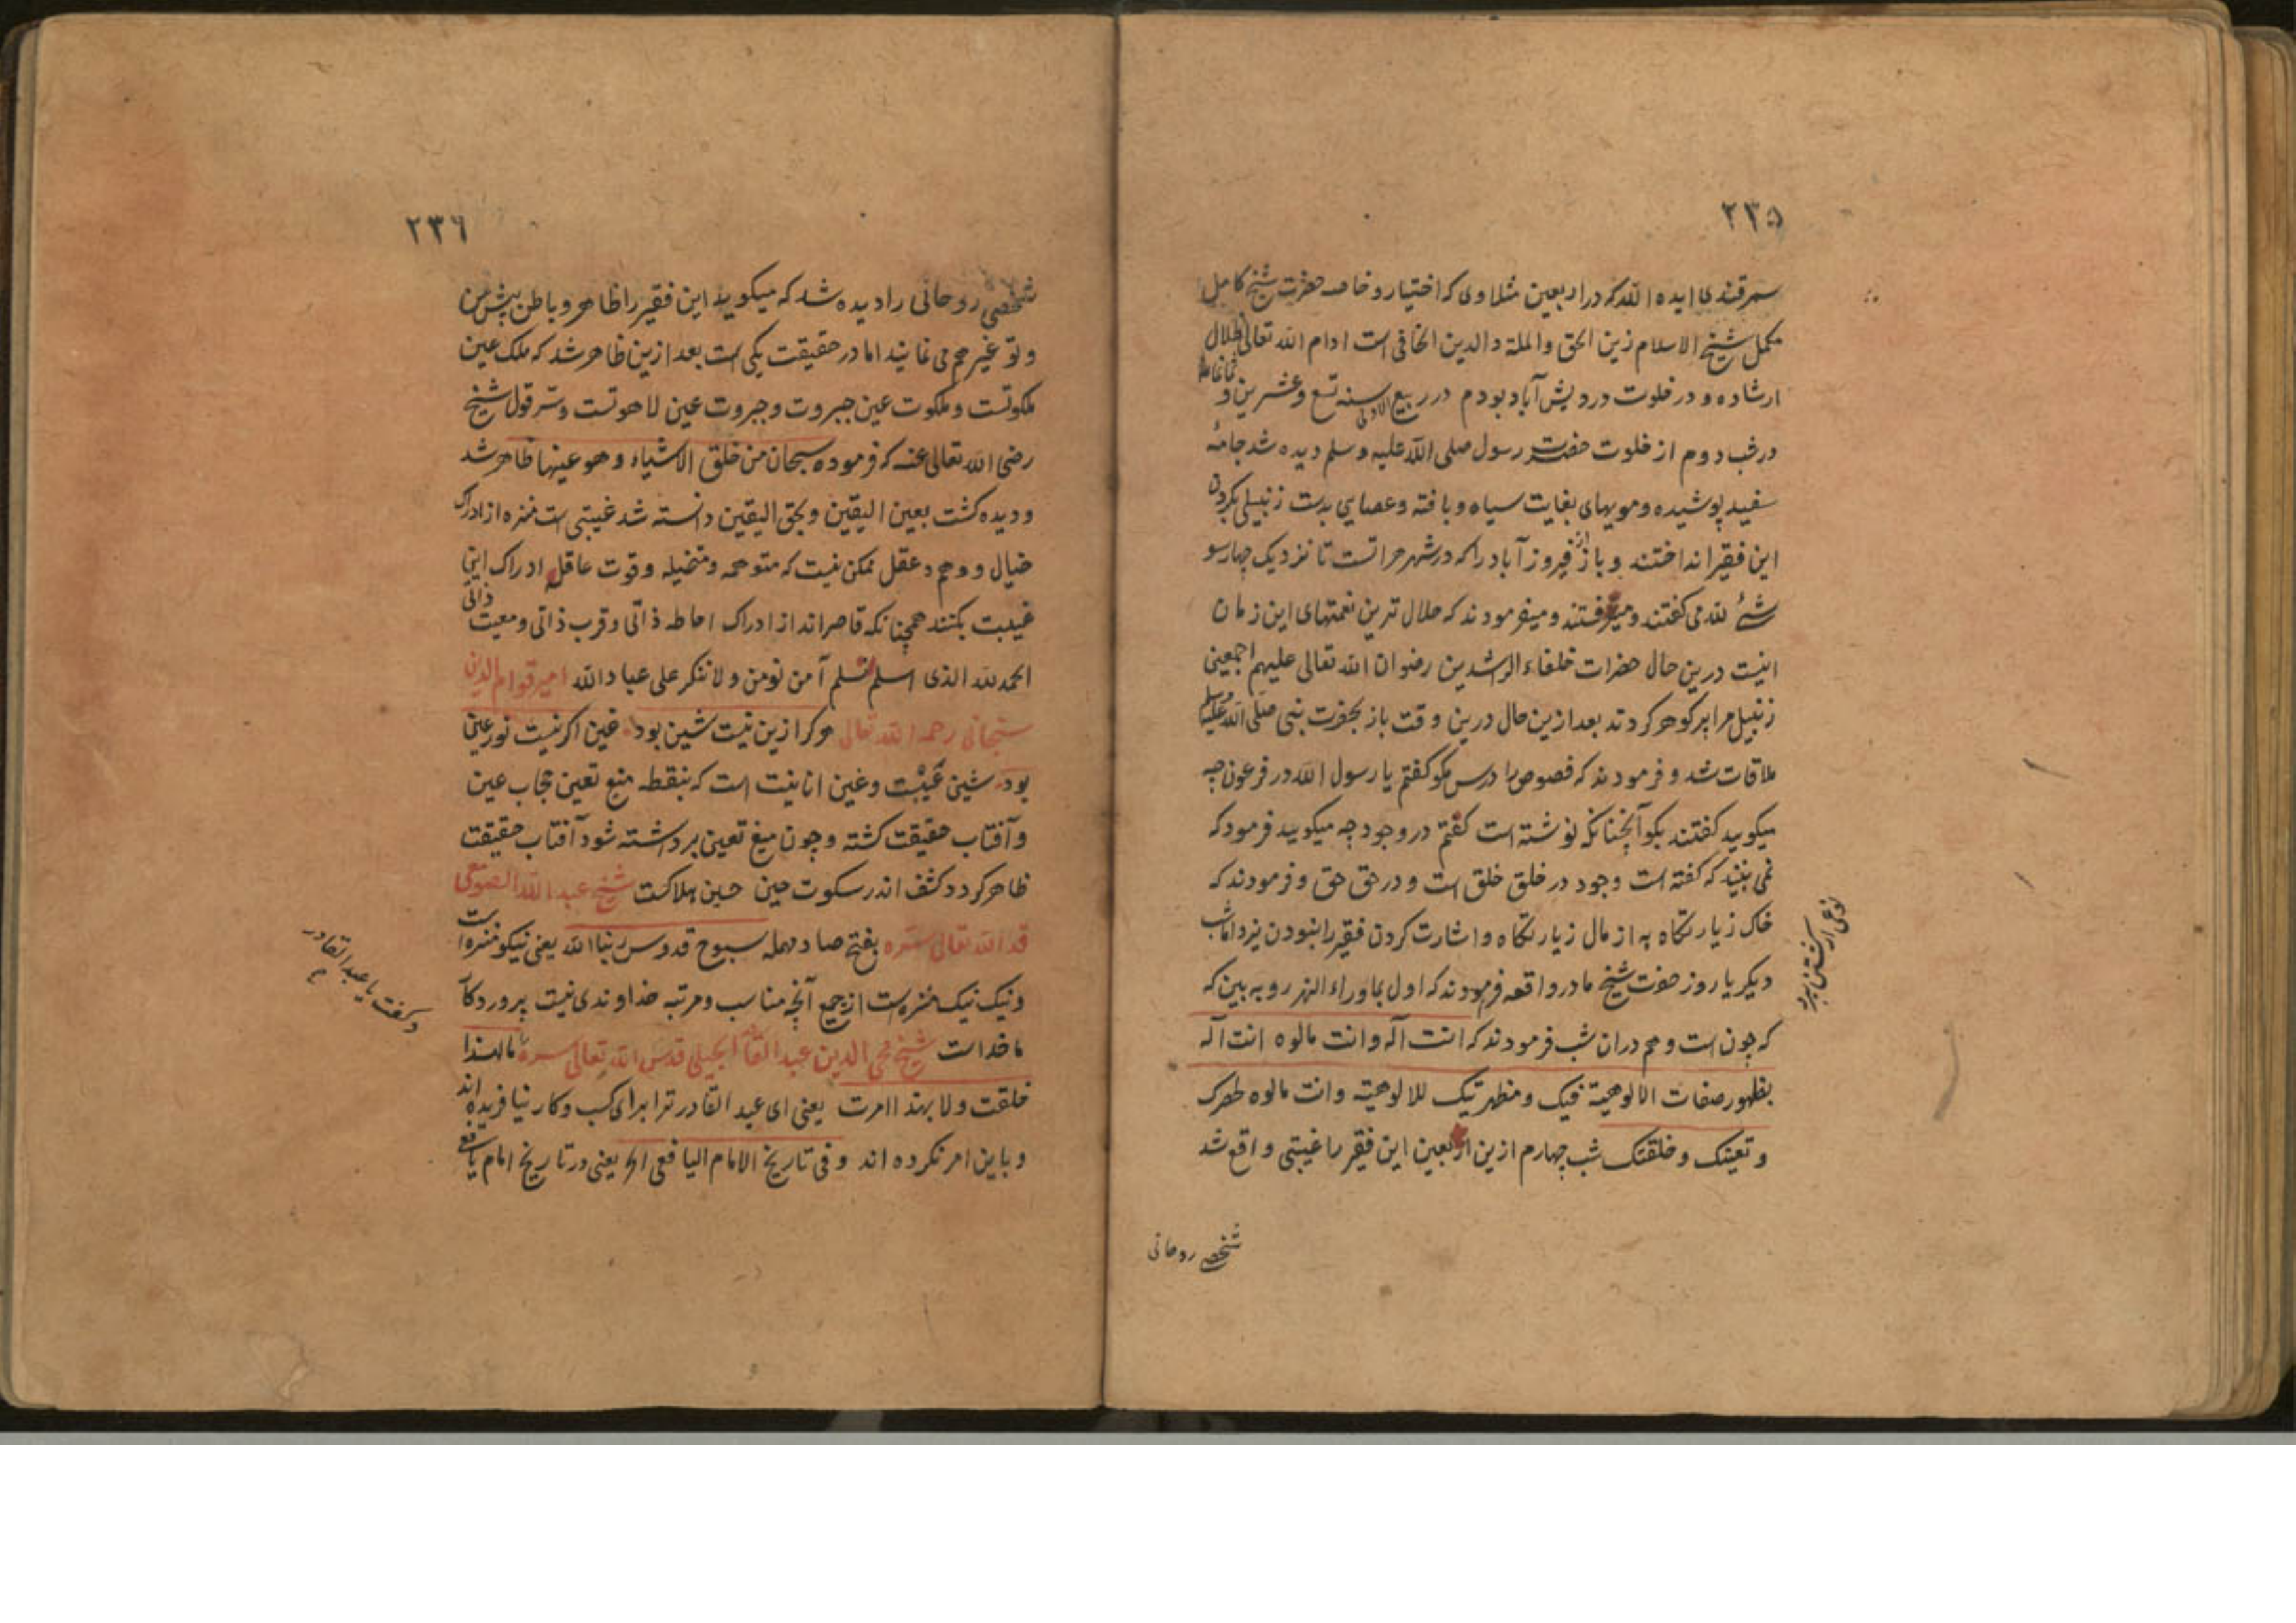 ۲۳۵
سمرقندی ایده الله که در اربعین مثلاوی که اختیار و خاصه حضرت شیخ کامل
مکمل شیخ الاسلام زین الحق والملة والدین الخافی است ادام الله تعالی ظلال
ارشاده و در خلوت درویش آباد بودم در ربیع الاولی سنه تسع وعشرین و ثمانمائة
در شب دوم از خلوت حضرت رسول صلی الله علیه وسلم دیده شد جامۀ
سفید پوشیده و مویهای بغایت سیاه و بافته و عصایی بدست زنبیلی بکردن
این فقیر انداختند و باز از فیروز آباد را که در شهر هراتست تا نزدیک چهارسو
شئ لله می کفتند و میکرفتند و میفرمودند که حلال ترین نعمتهای این زمان
اینست درین حال حضرات خلفاء الراشدین رضوان الله تعالی علیهم اجمعین
زنبیل مرا پر کوهر کردند بعد ازین حال درین وقت باز بحضرت نبی صلی الله علیه وسلم
ملاقات شد و فرمودند که فصوص را درس مکو کفتم یا رسول الله در فرعون چه
میکویید کفتند بکو آنچنانکه نوشته است کفتم در وجود چه میکویید فرمود که
نمی بینید که کفته است وجود در خلق خلق است و در حق حق و فرمودند که
خاک زیارتکاه به از مال زیارتکاه و اشارت کردن فقیر را بنبودن نیز داماشب
دیکر یا روز حضرت شیخ ما در واقعه فرمودند که اول بماوراء النهر رو به بین که
که چون است و هم در ان شب فرمودند که انت آله وانت مالوه انت آله
بظهور صفات الالوهیة فیک ومظهریتک للالوهیة وانت مالوه لحصرک
وتعینک وخلقتک شب چهارم ازین اربعین این فقیر را غیبتی واقع شد
شخصی روحانی
نوعی از کشتن نبرد
۲۳۶
شخصی روحانی را دیده شد که میکوید این فقیر را ظاهر و باطن پیش من
و تو غیر هم می نمایند اما در حقیقت یکی است بعد ازین ظاهر شد که ملک عین
ملکوتست وملکوت عین جبروت وجبروت عین لاهوتست وسر قول شیخ
رضی الله تعالی عنه که فرموده سبحان من خلق الاشیاء وهو عینها ظاهر شد
و دیده کشت بعین الیقین وبحق الیقین دانسته شد غیبتی است منزه از ادراک
خیال و وهم و عقل ممکن نیست که متوهمه ومتخیله وقوت عاقله ادراک این
غیبت بکنند همچنانکه قاصراند از ادراک احاطه ذاتی وقرب ذاتی ومعیت ذاتی
الحمد لله الذی اسلم تسلم آمن نومن ولا تنکر علی عباد الله امیر قوام الدین
سنجانی رحمه الله تعالی هرکرا زین نیت شین بود غین اکر نیست نور عین
بود شین عیبت وغین انانیت است که بنقطه منع تعین حجاب عین
و آفتاب حقیقت کشته وچون میغ تعین برداشته شود آفتاب حقیقت
ظاهر کردد کشف اندر سکوت حین حسین هلاکست شیخ عبد الله الصومعی
قد الله تعالی سره بفتح صاد مهمله سبوح قدوس ربنا الله یعنی نیکو منزه است
و نیک نیک منزه است از جمیع آنچه مناسب ومرتبه خداوندی نیست پروردکار
ما خداست شیخ محی الدین عبد القادر الجیلی قدس الله تعالی سره ما لهذا
خلقت ولا بهذا امرت یعنی ای عبد القادر ترا برای کسب وکار نیافریده اند
و باین امر نکرده اند وفی تاریخ الامام الیافعی الخ یعنی در تاریخ امام یافعی